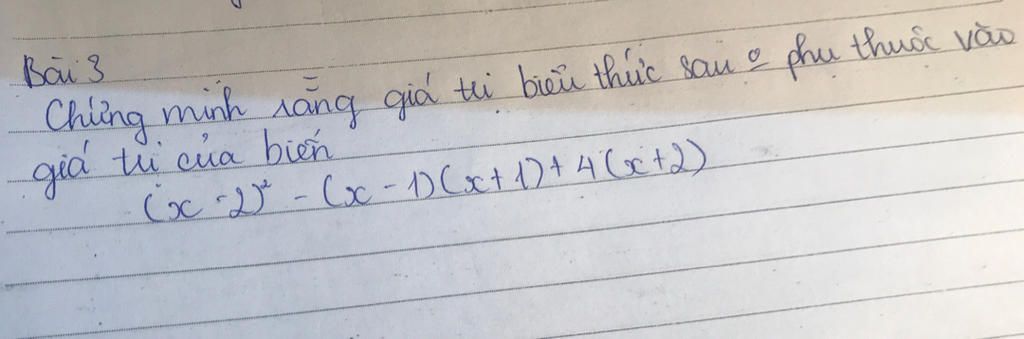 Bài 3
Chứng minh rằng giá trị biểu thức sau o phụ thuộc vào
giá trị của biến
(x - 2)² - (x - 1)(x + 1) + 4(x + 2)